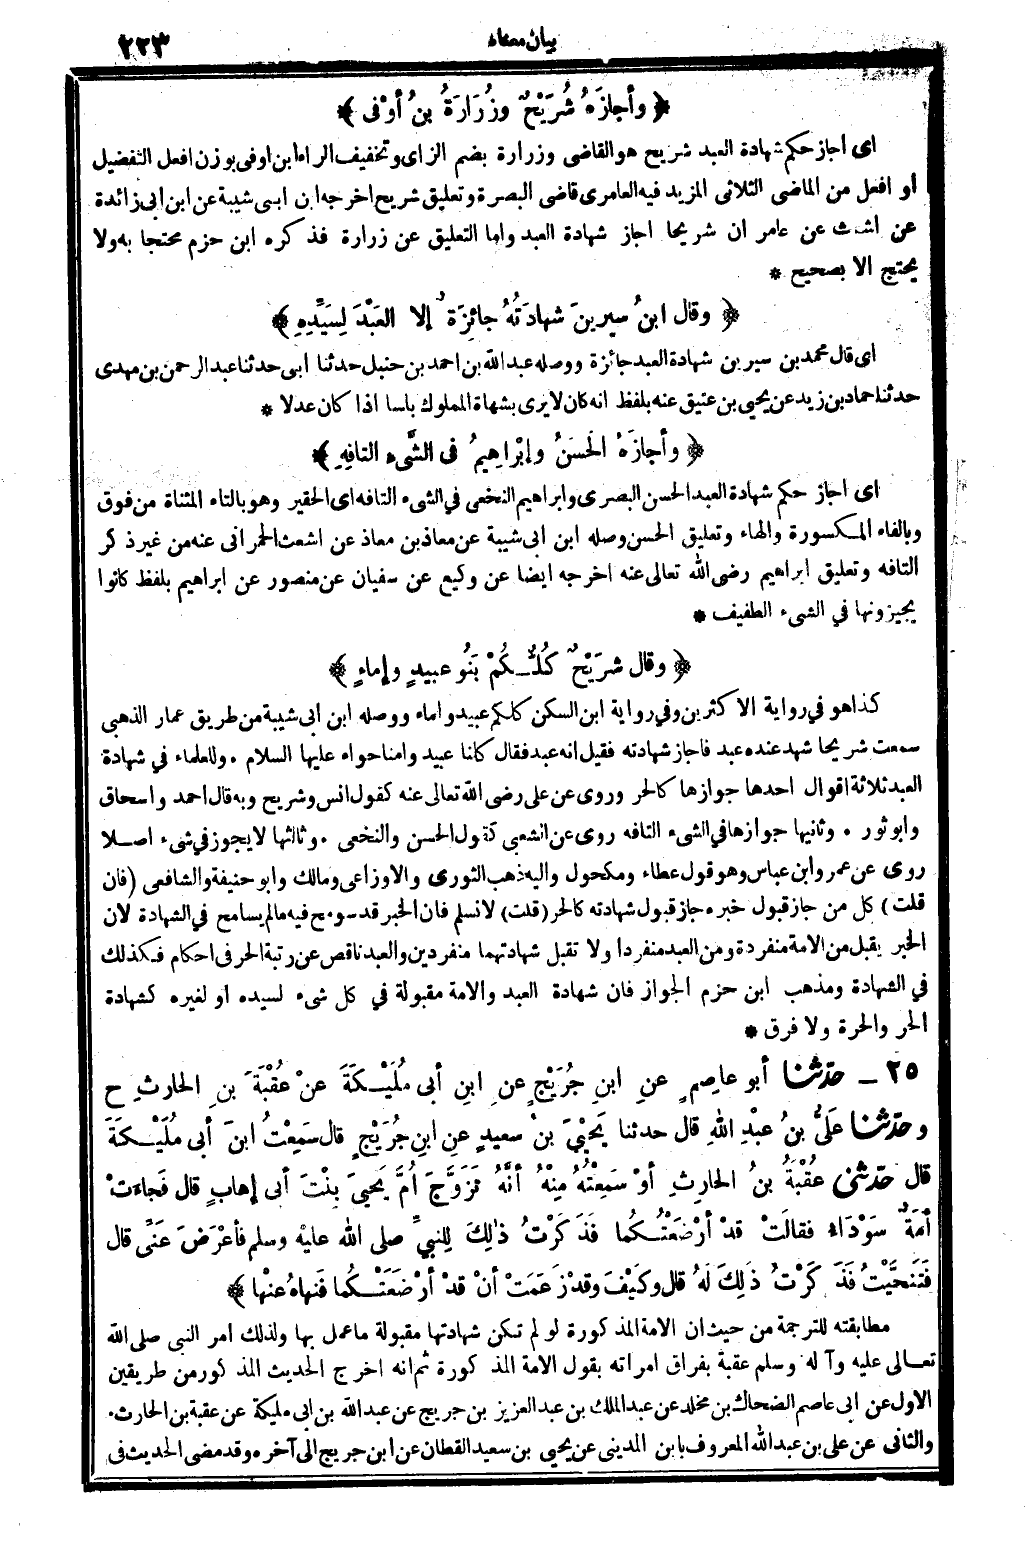 بيان معناه
٢٢٣
﴿ وأجازَهُ شُرَيْحٌ وزُرَارَةُ بنُ أوْفى ﴾
اى اجاز حكم شهادة العبد شريح هو القاضى وزرارة بضم الزاى وتخفيف الراء ابن اوفى بوزن افعل التفضيل
او افعل من الماضى الثلاثى المزيد فيه العامرى قاضى البصرة وتعليق شريح اخرجه ابن ابى شيبة عن ابن ابى زائدة
عن اشعث عن عامر ان شريحا اجاز شهادة العبد واما التعليق عن زرارة فذكره ابن حزم محتجا به ولا
يحتج الا بصحيح *
﴿ وقال ابنُ سيرينَ شهادَتُهُ جائِزَةٌ إلا العَبْدَ لِسَيِّدِهِ ﴾
اى قال محمد بن سيرين شهادة العبد جائزة ووصله عبد الله بن احمد بن حنبل حدثنا ابى حدثنا عبد الرحمن بن مهدى
حدثنا حماد بن زيد عن يحيى بن عتيق عنه بلفظ انه كان لا يرى بشهاة المملوك باسا اذا كان عدلا *
﴿ وأجازَهُ الحَسَنُ وإبْراهِيمُ فى الشَّىْءِ التافِهِ ﴾
اى اجاز حكم شهادة العبد الحسن البصرى وابراهيم النخعى في الشىء التافه اى الحقير وهو بالتاء المثناة من فوق
وبالفاء المكسورة والهاء وتعليق الحسن وصله ابن ابى شيبة عن معاذ بن معاذ عن اشعث الحمرانى عنه من غير ذكر
التافه وتعليق ابراهيم رضى الله تعالى عنه اخرجه ايضا عن وكيع عن سفيان عن منصور عن ابراهيم بلفظ كانوا
يجيزونها في الشىء الطفيف *
﴿ وقال شرَيْحٌ كُلُّكُمْ بَنُو عبيدٍ وإماءٍ ﴾
كذا هو في رواية الاكثرين وفي رواية ابن السكن كلكم عبيد واماء ووصله ابن ابى شيبة من طريق عمار الذهبى
سمعت شريحا شهد عنده عبد فاجاز شهادته فقيل انه عبد فقال كلنا عبيد وامنا حواء عليها السلام . وللعلماء في شهادة
العبد ثلاثة اقوال احدها جوازها كالحر وروى عن على رضى الله تعالى عنه كقول انس وشريح وبه قال احمد واسحاق
وابو ثور . وثانيها جوازها في الشىء التافه روى عن الشعبى كقول الحسن والنخعى . وثالثها لا يجوز في شىء اصلا
روى عن عمر وابن عباس وهو قول عطاء ومكحول واليه ذهب الثورى والاوزاعى ومالك وابو حنيفة والشافعى (فان
قلت) كل من جاز قبول خبره جاز قبول شهادته كالحر (قلت) لا نسلم فان الخبر قد سومح فيه مالم يسامح في الشهادة لان
الخبر يقبل من الامة منفردة ومن العبد منفردا ولا تقبل شهادتهما منفردين والعبد ناقص عن رتبة الحر فى احكام فكذلك
في الشهادة ومذهب ابن حزم الجواز فان شهادة العبد والامة مقبولة في كل شىء لسيده او لغيره كشهادة
الحر والحرة ولا فرق *
٢٥ ـ حدّثنا أبو عاصِمٍ عنِ ابنِ جُرَيْجٍ عنِ ابنِ أبى مُلَيْكَةَ عنْ عُقْبَةَ بنِ الحارِثِ ح
وحدّثنا علىُّ بنُ عبْدِ اللهِ قال حدثنا يَحْيَى بنُ سعيدٍ عنِ ابنِ جُرَيْجٍ قال سَمِعْتُ ابنَ أبى مُلَيْكَةَ
قال حدّثنى عُقْبَةُ بنُ الحارِثِ أوْ سَمِعْتُهُ مِنْهُ أنَّهُ تَزَوَّجَ أُمَّ يَحيَى بِنْتَ أبى إهابٍ قال فَجاءَتْ
أمَةٌ سَوْدَاءُ فقالَتْ قدْ أرْضَعْتُكُما فَذَكَرْتُ ذٰلِكَ لِلنبيِّ صلى الله عليْه وسلم فأعْرَضَ عَنِّى قال
فَتَنَحَّيْتُ فَذَكَرْتُ ذٰلِكَ لَهُ قال وكَيْفَ وقدْ زَعَمَتْ أنْ قدْ أرْضَعَتْكُما فَنهاهُ عنْها ﴾
مطابقته للترجمة من حيث ان الامة المذكورة لو لم تكن شهادتها مقبولة ما عمل بها ولذلك امر النبى صلى الله
تعالى عليه وآله وسلم عقبة بفراق امراته بقول الامة المذكورة ثم انه اخرج الحديث المذكور من طريقين
الاول عن ابى عاصم الضحاك بن مخلد عن عبد الملك بن عبد العزيز بن جريج عن عبد الله بن ابى مليكة عن عقبة بن الحارث.
والثانى عن على بن عبد الله المعروف بابن المدينى عن يحيى بن سعيد القطان عن ابن جريج الى آخره . وقد مضى الحديث فى